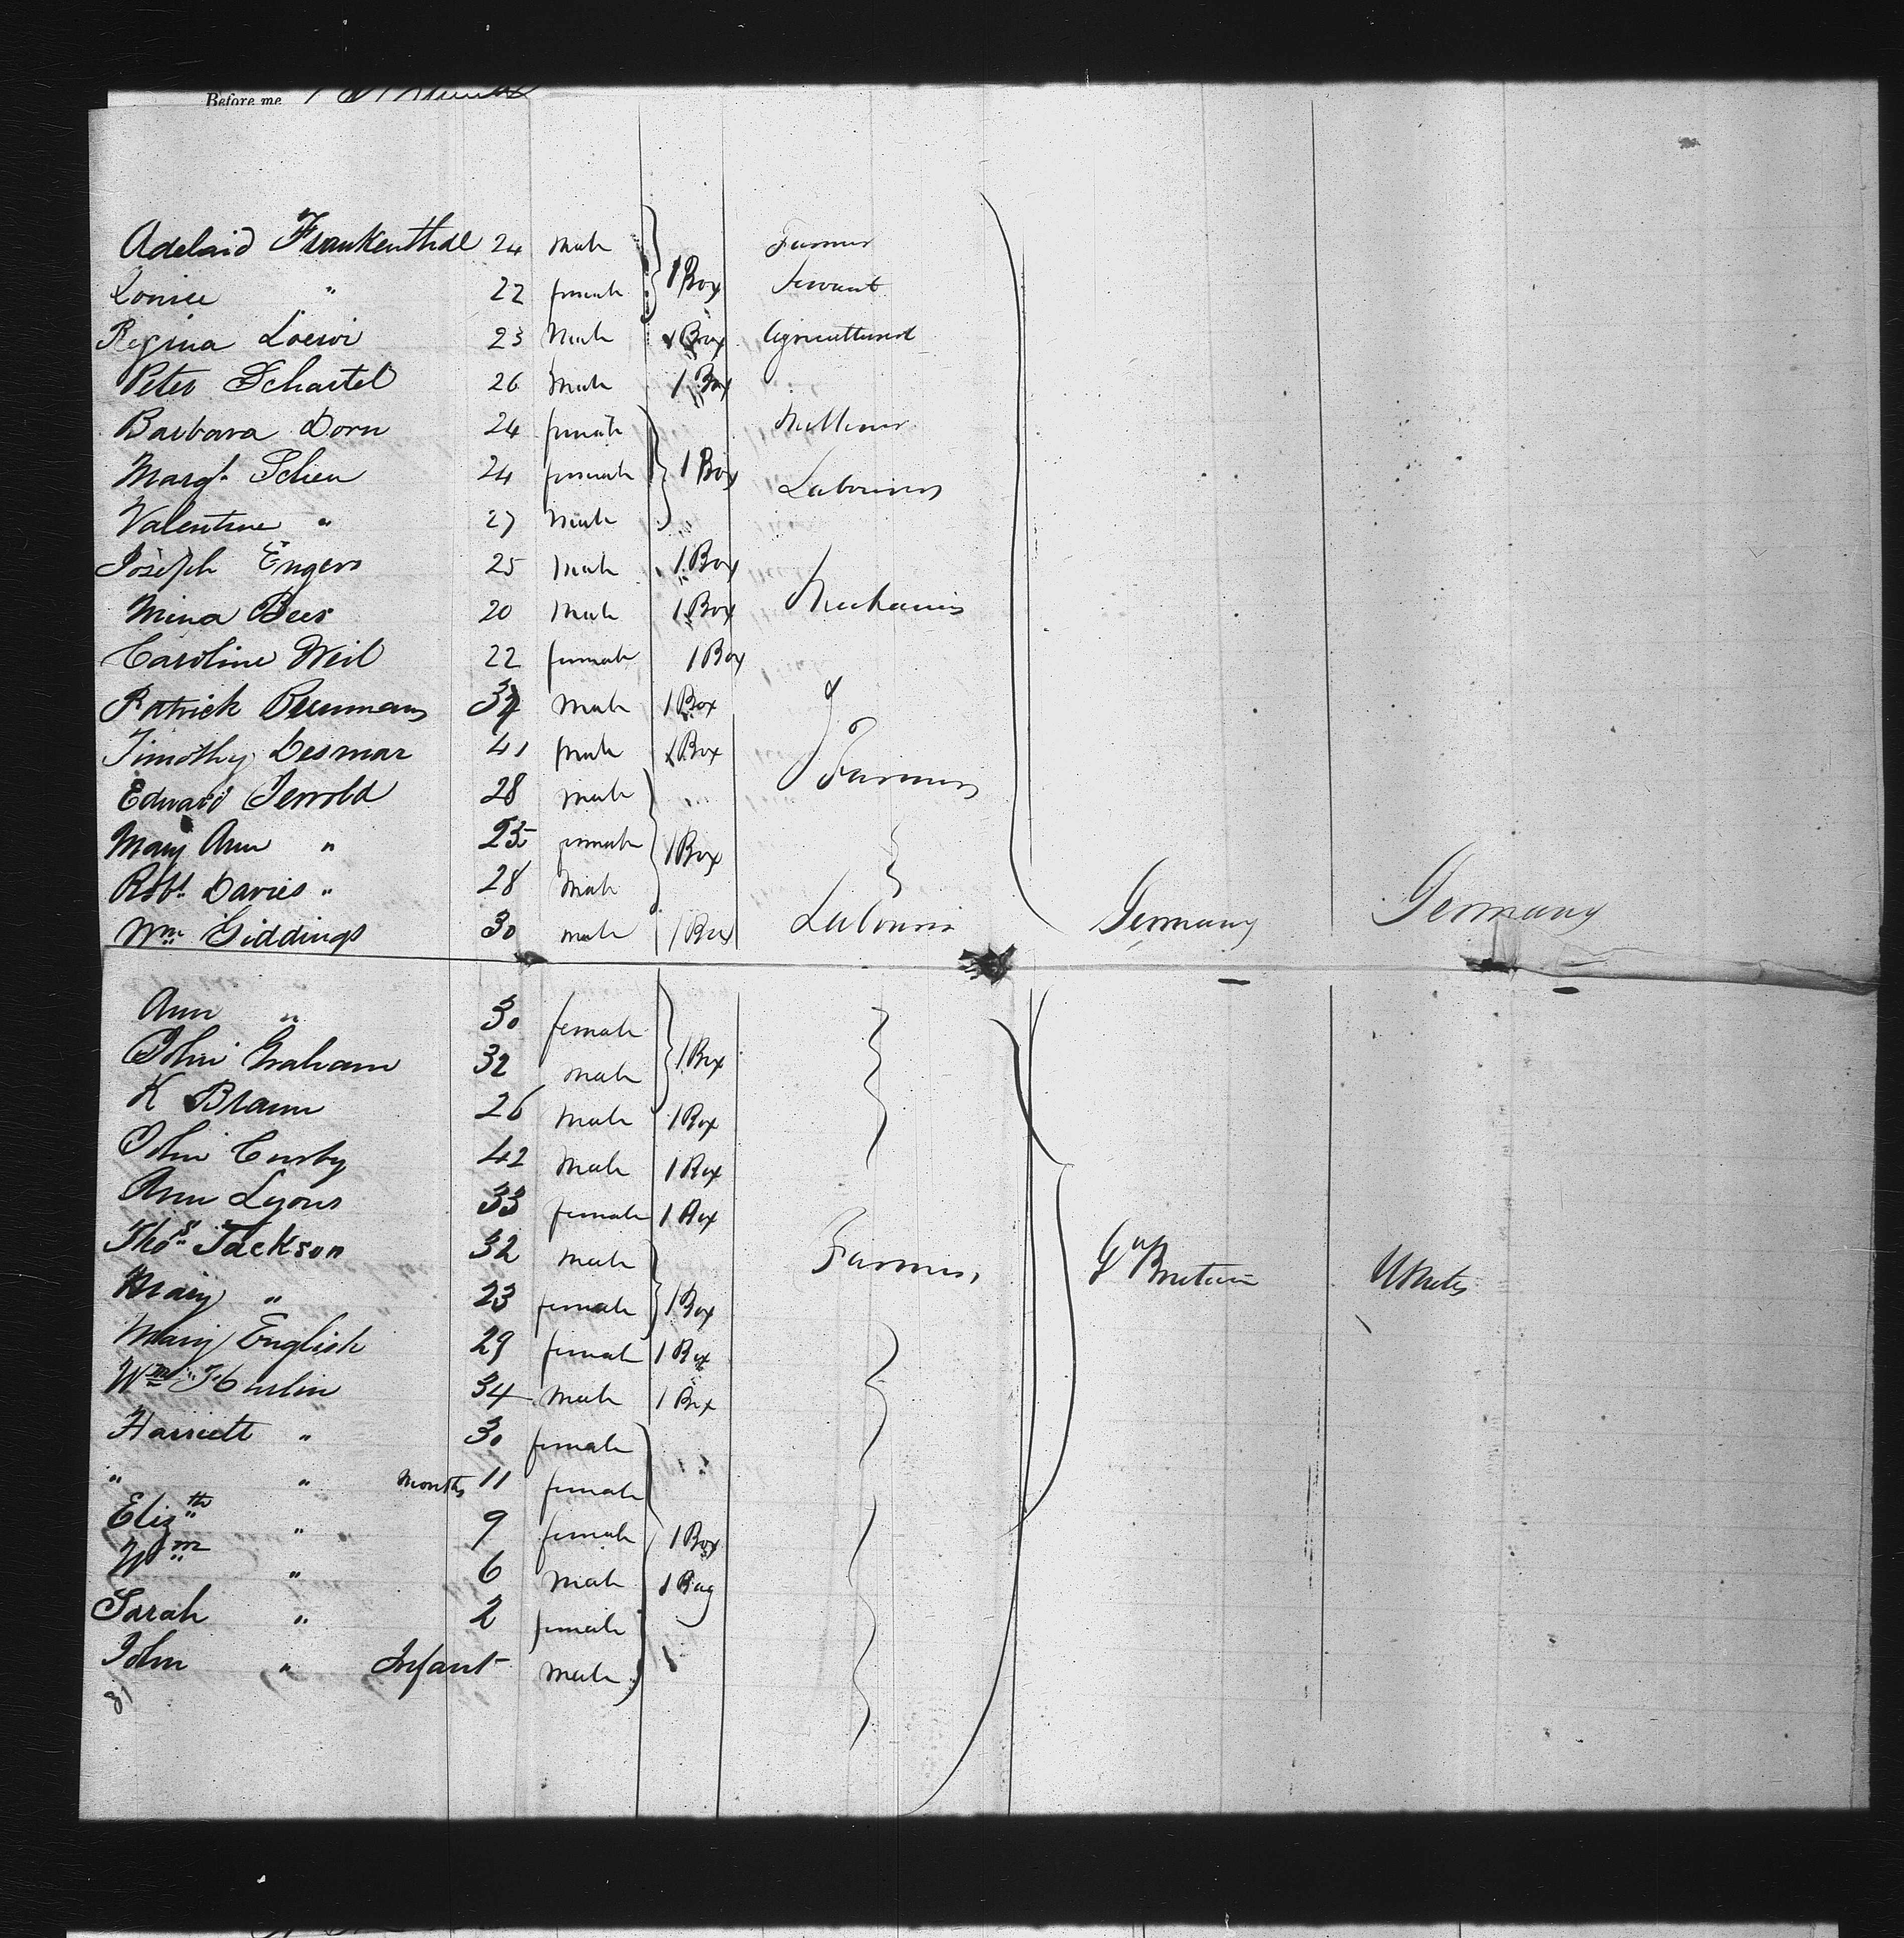 Before me
Adelaid Frankenthal 24 Male Farmer
Louise " 22 female 1 Box Servant
Regina Loewi 23 Male 1 Box Agriculturist
Peter Schartel 26 Male 1 Box
Barbara Dorn 24 female Milliner
Margt. Scheu 24 female 1 Box Labourers
Valentine " 27 Male
Joseph Engers 25 Male 1 Box
Mina Beer 20 Male 1 Box Mechanics
Caroline Weil 22 female 1 Box
Patrick 1 Box &
Timothy Desmar 41 Male 1 Box
Edward Jerrold 28 Male Farmers
Mary Ann " 25 female 1 Box
Robt. Davies " 28 Male
Wm Giddings 30 Male 1 Box Labourers Germany Germany
Ann " 30 female
John Graham 32 Male 1 Box
K Braun 26 Male 1 Box
John 42 Male 1 Box
Ann Lyons 33 female 1 Box
Thos Jackson 32 Male Farmers Gt Britain U States
Mary " 23 female 1 Box
Mary English 29 female 1 Box
Wm 34 Male 1 Box
Harriett " 30 female
" " Months 11 female
Elizth " 9 female 1 Box
Wm " 6 Male 1 Bag
Sarah " 2 female
John " Infant Male
81